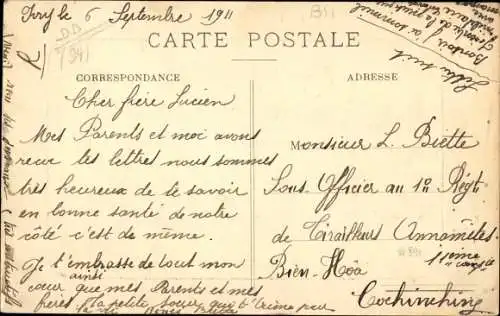 Ivry le 6 Septembre 1911
CARTE POSTALE
CORRESPONDANCE
ADRESSE
Cher frère Lucien
Mes Parents et moi avons
reçue tes lettres nous sommes
très heureux de te savoir
en bonne santé de notre
côté c'est de même.
Je t'embrasse de tout mon
ainsi
cœur que mes Parents et mes
frères la petite sœur qui t'
Monsieur L. Biette
Sous Officier au 1er Régt
de Tirailleurs Annamites
11eme Compie
Bien-Hòa
Cochinchine
Lettre suit